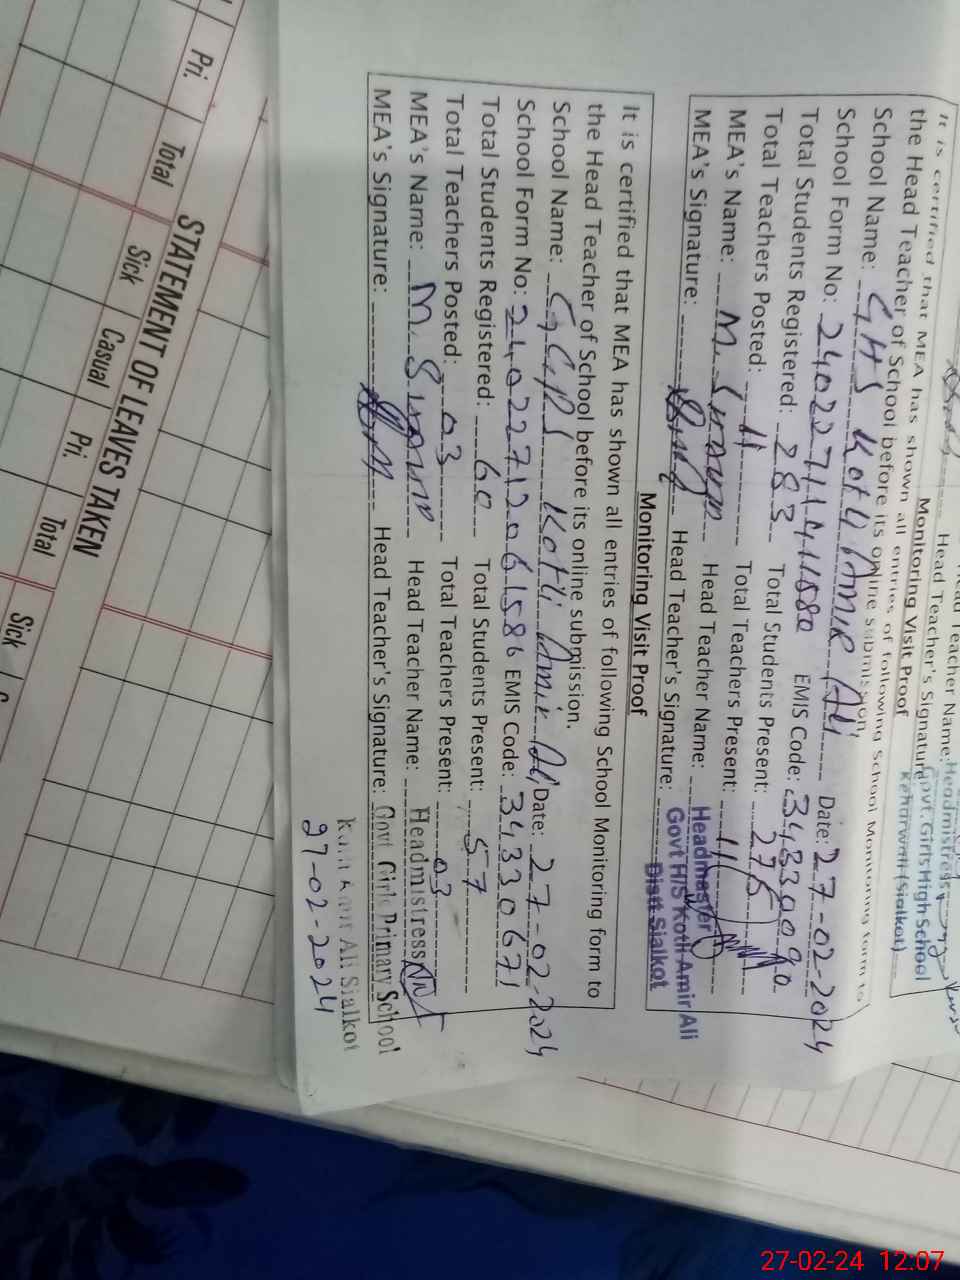 Head Teacher Name: Headmistress
Head Teacher's Signature Govt. Girls High School
(Sialkot)
Monitoring Visit Proof
It is certified that MEA has shown all entries of following School Monitoring form to
the Head Teacher of School before its online submission.
School Name: GHS Kotli Amir Ali Date: 27-02-2024
School Form No: EMIS Code:
Total Students Registered: 283 Total Students Present: 275
Total Teachers Posted: 11 Total Teachers Present: 11
MEA's Name: M. Head Teacher Name: Headmaster
MEA's Signature: Head Teacher's Signature: Govt H/S Kotli Amir Ali
Distt Sialkot
Monitoring Visit Proof
It is certified that MEA has shown all entries of following School Monitoring form to
the Head Teacher of School before its online submission.
School Name: GGPS Kotli Amir Ali Date: 27-02-2024
School Form No: 24022712061586 EMIS Code: 34330671
Total Students Registered: 60 Total Students Present: 57
Total Teachers Posted: 03 Total Teachers Present: 03
MEA's Name: M. Head Teacher Name: Headmistress
MEA's Signature: Head Teacher's Signature: Govt Girls Primary School
Ali Sialkot
27-02-2024
STATEMENT OF LEAVES TAKEN
Pri. Total Sick Casual Pri. Total Sick
27-02-24 12:07